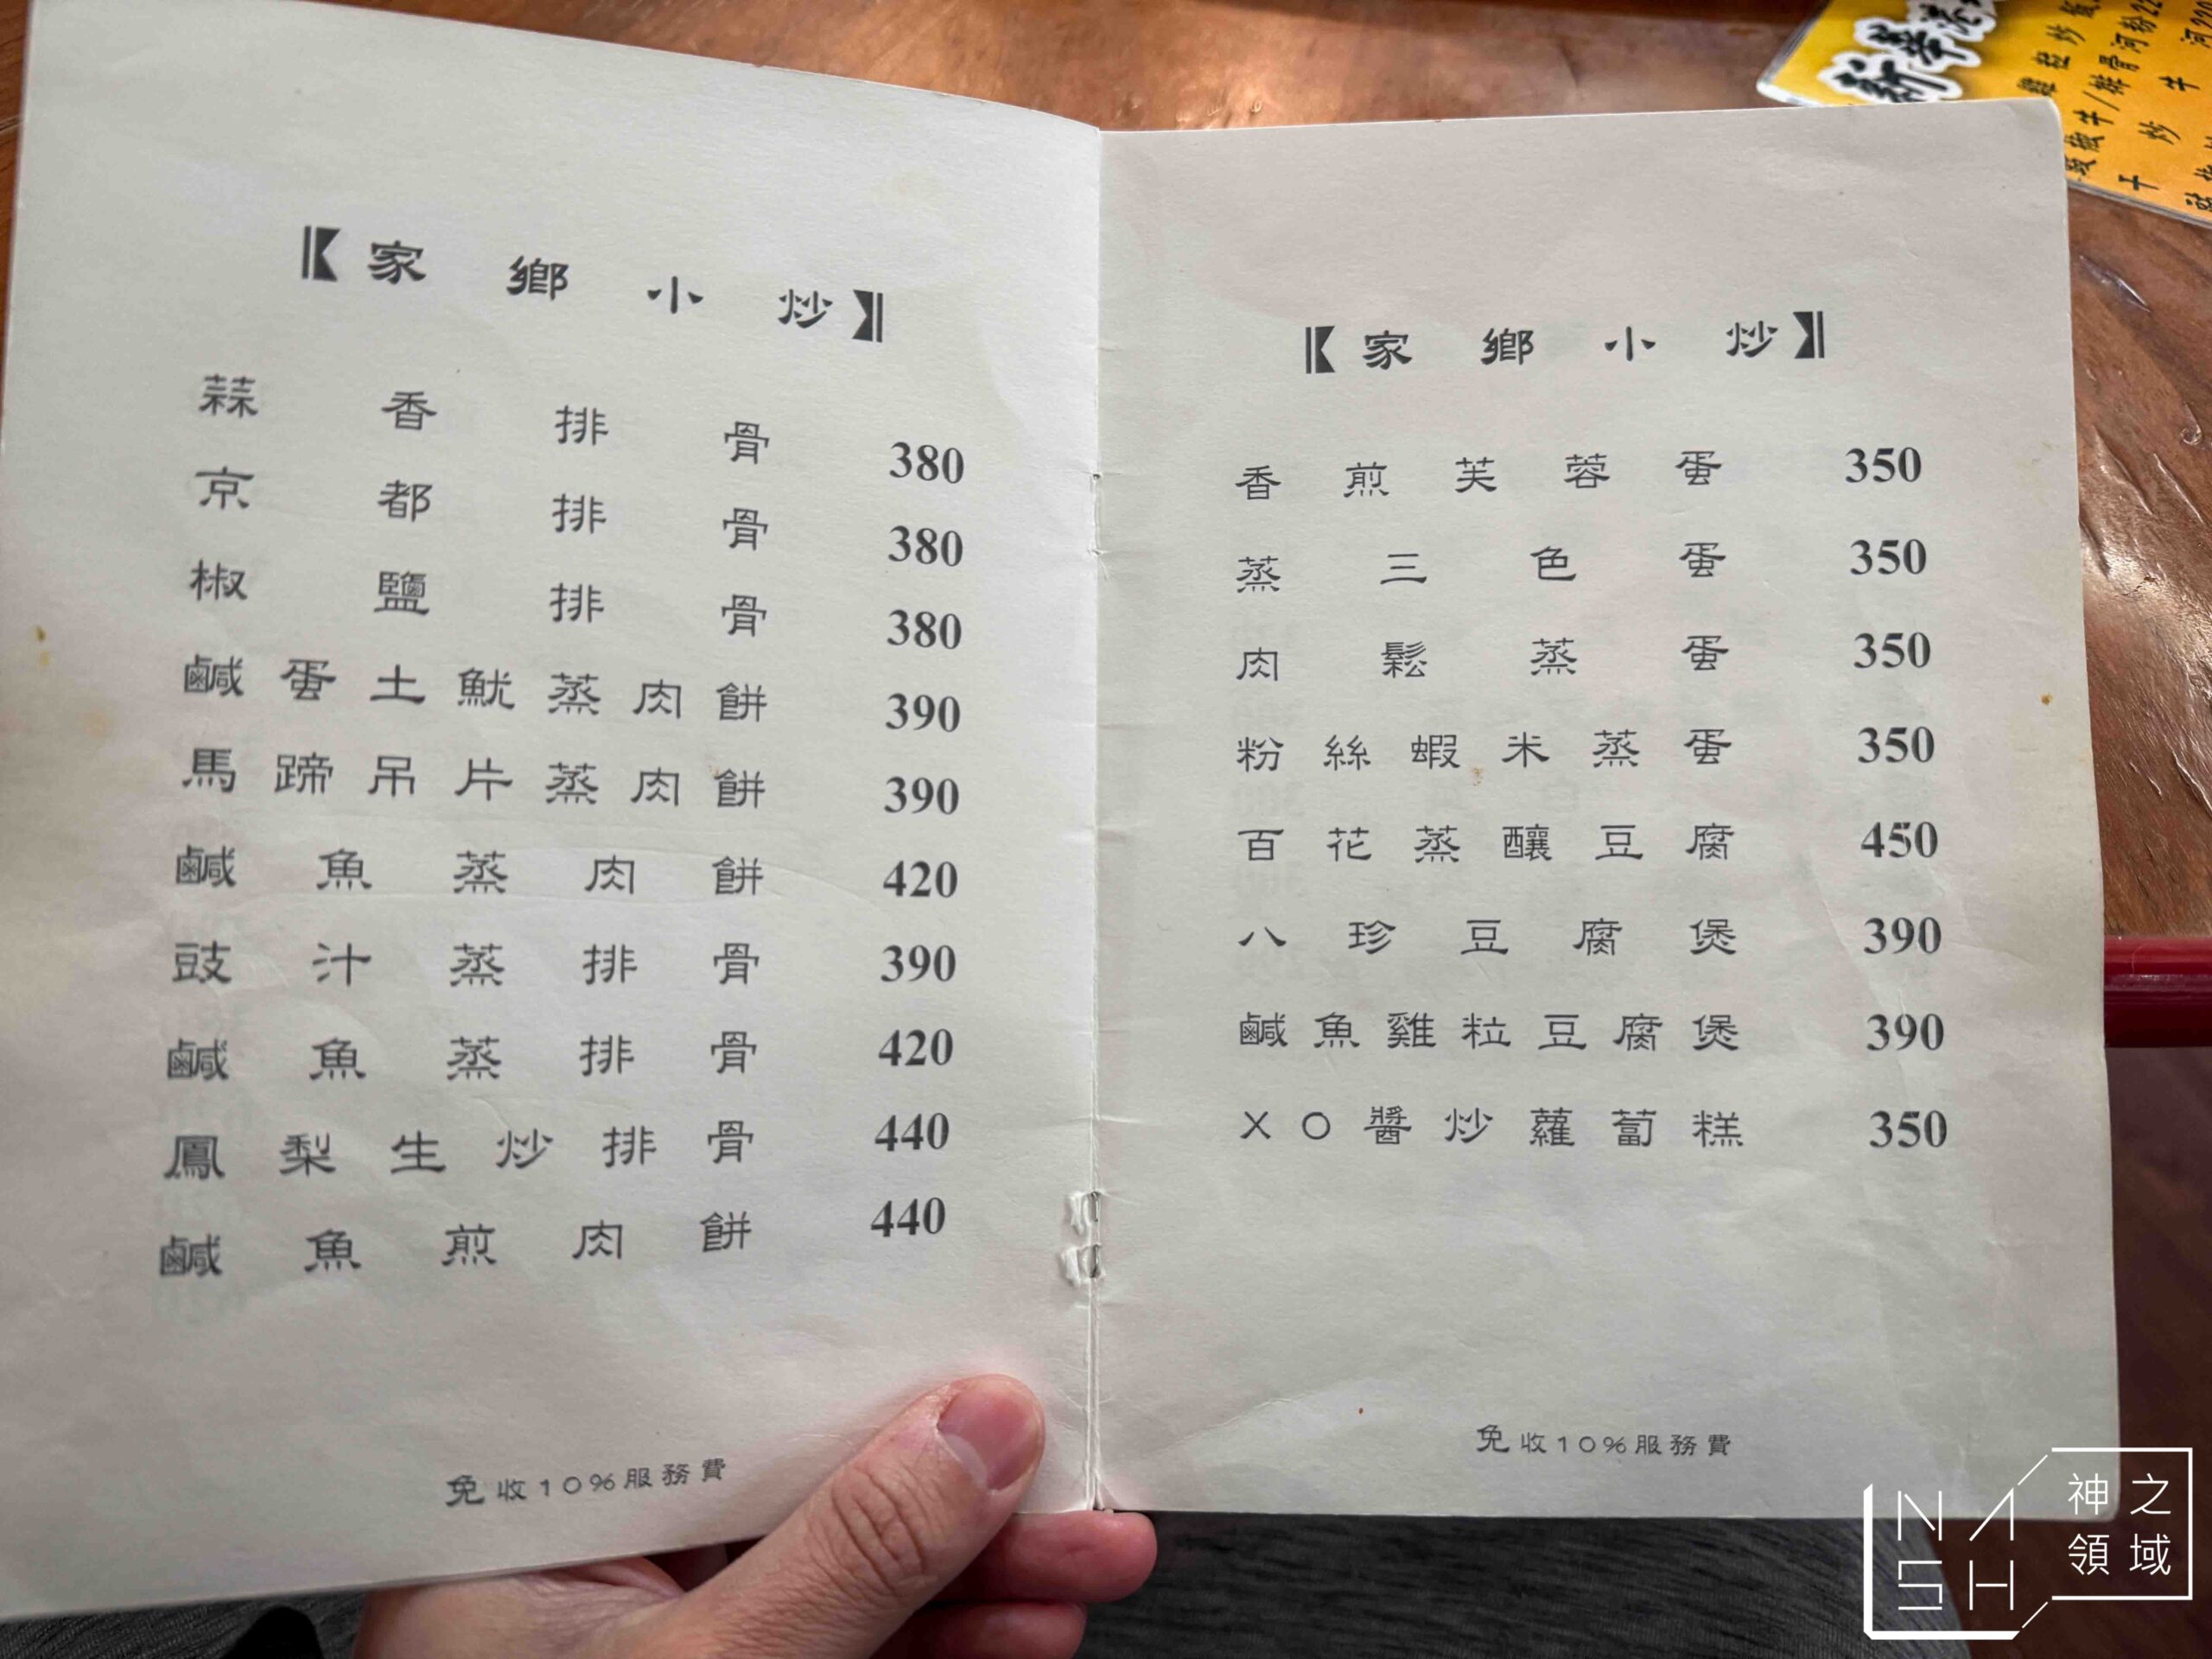 【家鄉小炒】
蒜香排骨 380
京都排骨 380
椒鹽排骨 380
鹹蛋土魷蒸肉餅 390
馬蹄吊片蒸肉餅 390
鹹魚蒸肉餅 420
豉汁蒸排骨 390
鹹魚蒸排骨 420
鳳梨生炒排骨 440
鹹魚煎肉餅 440
免收10%服務費
【家鄉小炒】
香煎芙蓉蛋 350
蒸三色蛋 350
肉鬆蒸蛋 350
粉絲蝦米蒸蛋 350
百花蒸釀豆腐 450
八珍豆腐煲 390
鹹魚雞粒豆腐煲 390
XO醬炒蘿蔔糕 350
免收10%服務費
NASH
神之領域